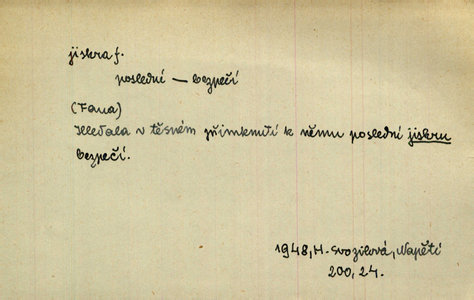 jiskra f.
poslední — bezpečí
(Fana)
Hledala v těsném přimknutí k němu poslední jiskru
bezpečí.
1948, H. Svozilová, Napětí
200, 24.